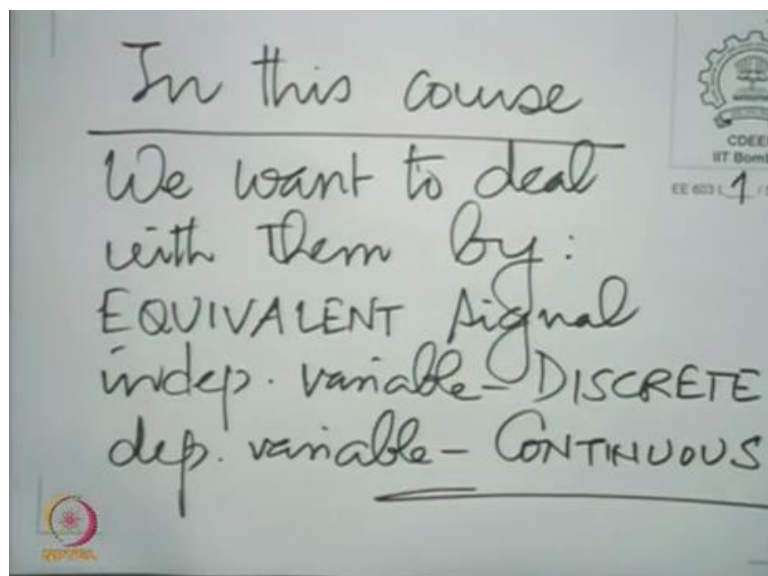 In this course
We want to deal
with them by:
EQUIVALENT signal
indep. variable - DISCRETE
dep. variable - CONTINUOUS
CDEEP
IIT Bomb
EE 603 L 1 / S